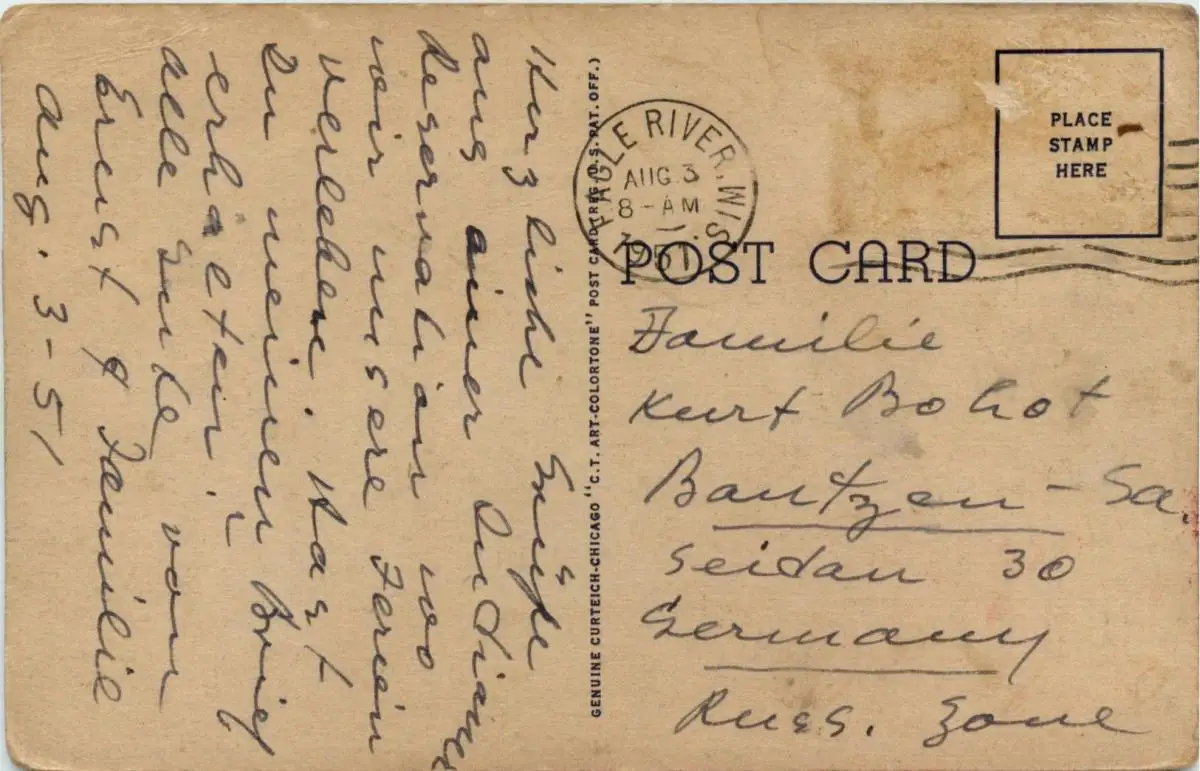 Herzliche Grüße
aus einer Indianer
Reservation wo
wir unsere Ferien
verleben. Hast
Du meinen Brief
erhalten?
alle Gute von
Ernst & Familie
Aug. 3-51
GENUINE CURTEICH-CHICAGO "C.T. ART-COLORTONE" POST CARD (REG. U.S. PAT. OFF.)
EAGLE RIVER, WIS.
AUG 3
8-AM
1951
PLACE
STAMP
HERE
POST CARD
Familie
Kurt Bohot
Bautzen-Sa.
Seidau 30
Germany
Russ. Zone